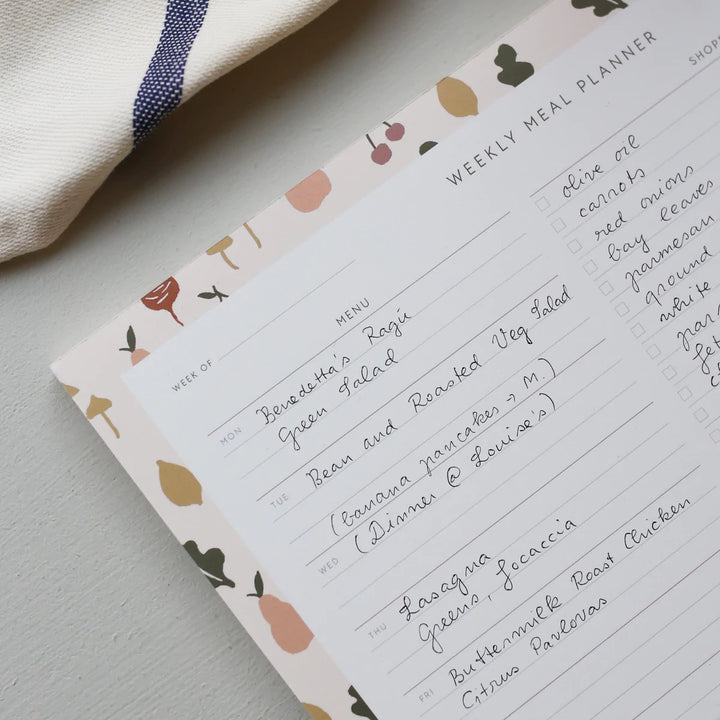 WEEKLY MEAL PLANNER
WEEK OF
MENU
MON
Benedetta's Ragú
Green Salad
TUE
Bean and Roasted Veg Salad
WED
(banana pancakes → M.)
(Dinner @ Louise's)
THU
Lasagna
Greens, focaccia
FRI
Buttermilk Roast Chicken
Citrus Pavlovas
olive oil
carrots
red onions
bay leaves
parmesan
ground
white